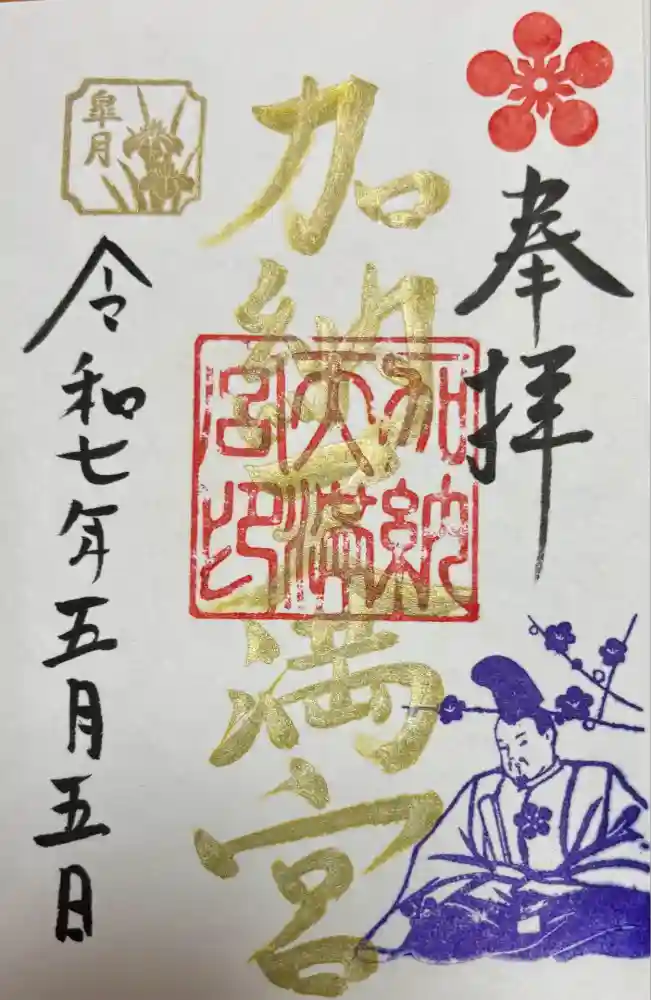 奉拝
加納天満宮
加納天満宮印
皐月
令和七年五月五日